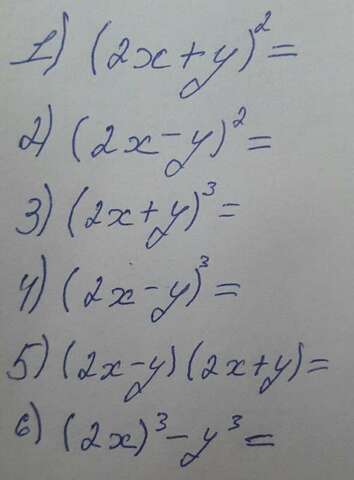 1) (2x+y)²=
2) (2x-y)²=
3) (2x+y)³=
4) (2x-y)³=
5) (2x-y)(2x+y)=
6) (2x)³-y³=